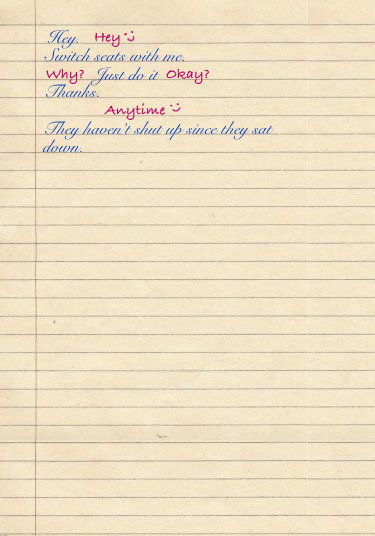 Hey. Hey :)
Switch seats with me.
Why? Just do it Okay?
Thanks.
Anytime :)
They haven't shut up since they sat
down.